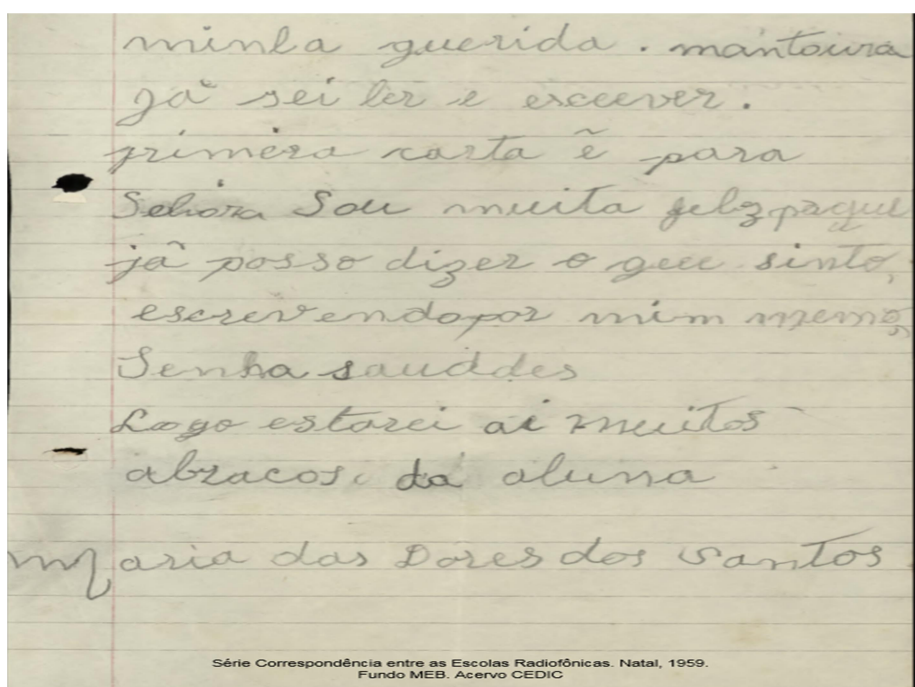 minla querida. mantoura
já sei ler e esceever.
primera carta ẽ para
Sehóra Sou muita felız paque
jã posso dizer o que sinto,
escrevendo por mim memo,
Senha sauddes
Logo estarei ai muitos
abracos. da aluna
Maria das Dores dos Santos
Série Correspondência entre as Escolas Radiofônicas. Natal, 1959.
Fundo MEB. Acervo CEDIC